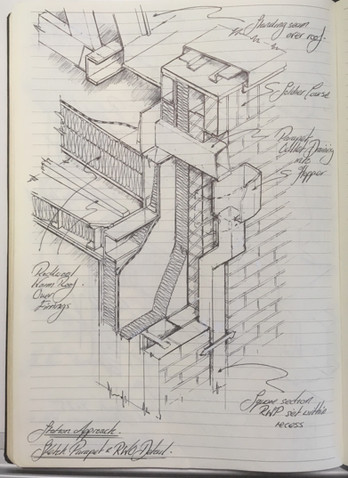 Standing seam
over roof.
Soldier Course
Parapet
Gutter Draining
into
Hopper
Reduced
Warm Roof
Over
Firrings
Square section
RWP set within
recess
Approach.
Sketch Parapet & RWG Detail.